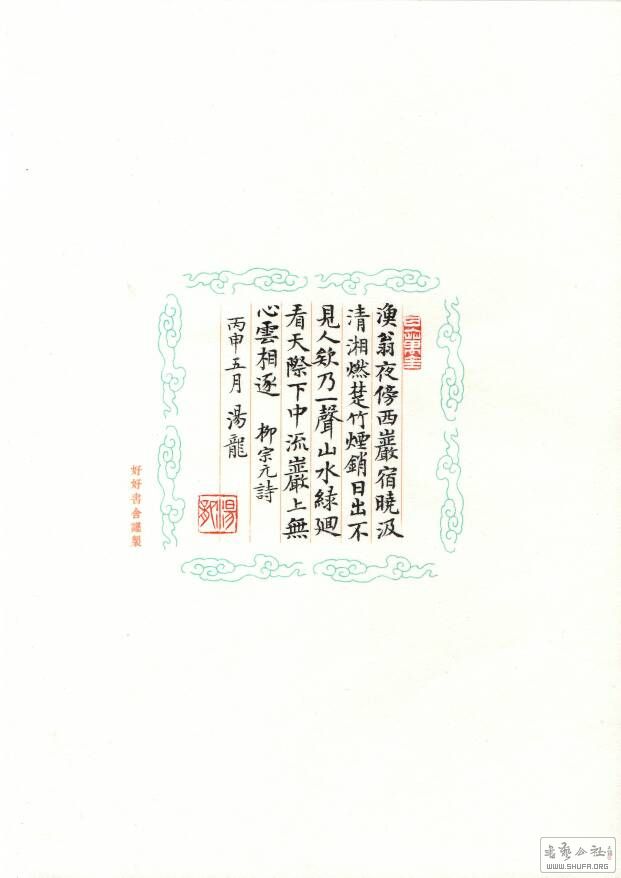 漁翁夜傍西巖宿曉汲
清湘燃楚竹煙銷日出不
見人欸乃一聲山水綠廻
看天際下中流巖上無
心雲相逐 柳宗元詩
丙申五月 湯龍
湯龍
好好書會謹製
WWW.SHUFA.ORG